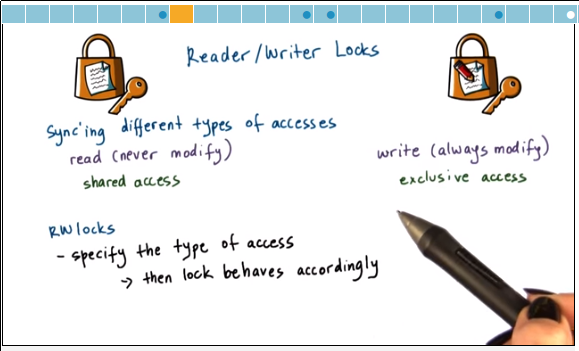 Reader/Writer Locks
Sync'ing different types of accesses
read (never modify)
shared access
write (always modify)
exclusive access
RW locks
- specify the type of access
→ then lock behaves accordingly